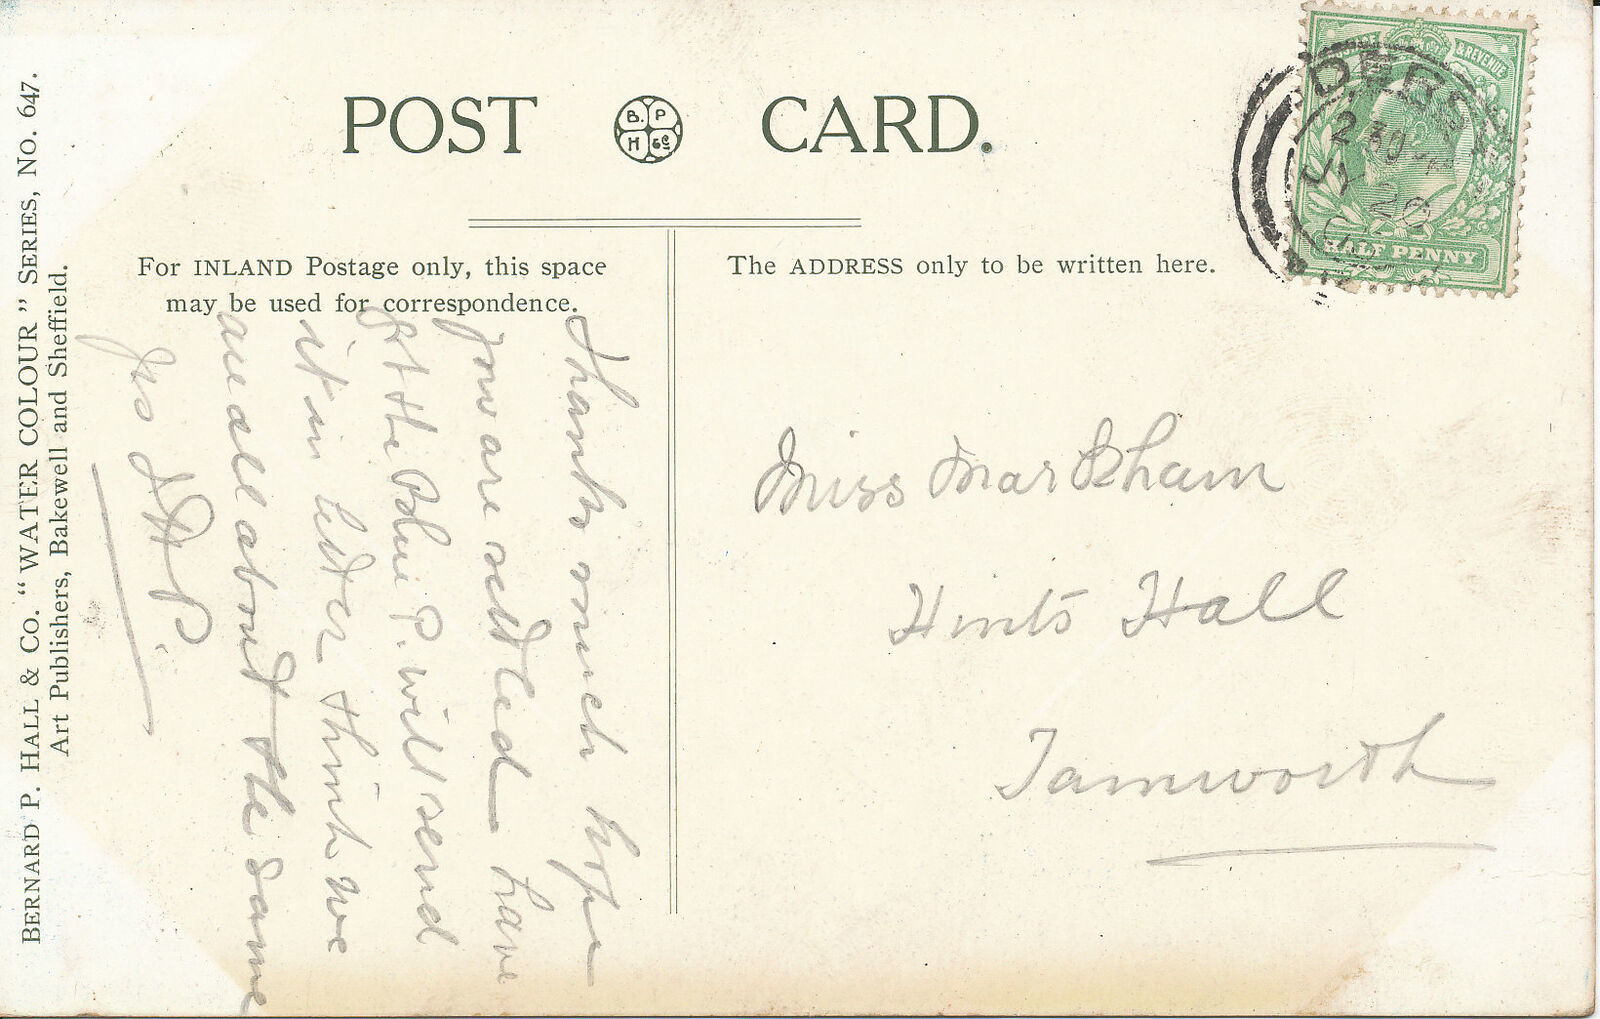 POST CARD.
B. P
H &Co
& REVENUE
HALF PENNY
DERBY
2 30
JY 20
For INLAND Postage only, this space
may be used for correspondence.
The ADDRESS only to be written here.
BERNARD P. HALL & CO. "WATER COLOUR" SERIES, NO. 647.
Art Publishers, Bakewell and Sheffield.
Thanks much hope
you are settled have
got the Blue P. will send
it in letter think we
are all about the same
Miss Markham
Hints Hall
Tamworth